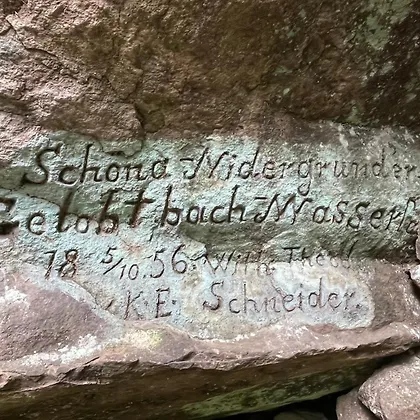 Schöna Nidergrunder
Gelobtbach Wasserf
18 5/10 56. Wilh. Theod.
K. E. Schneider.